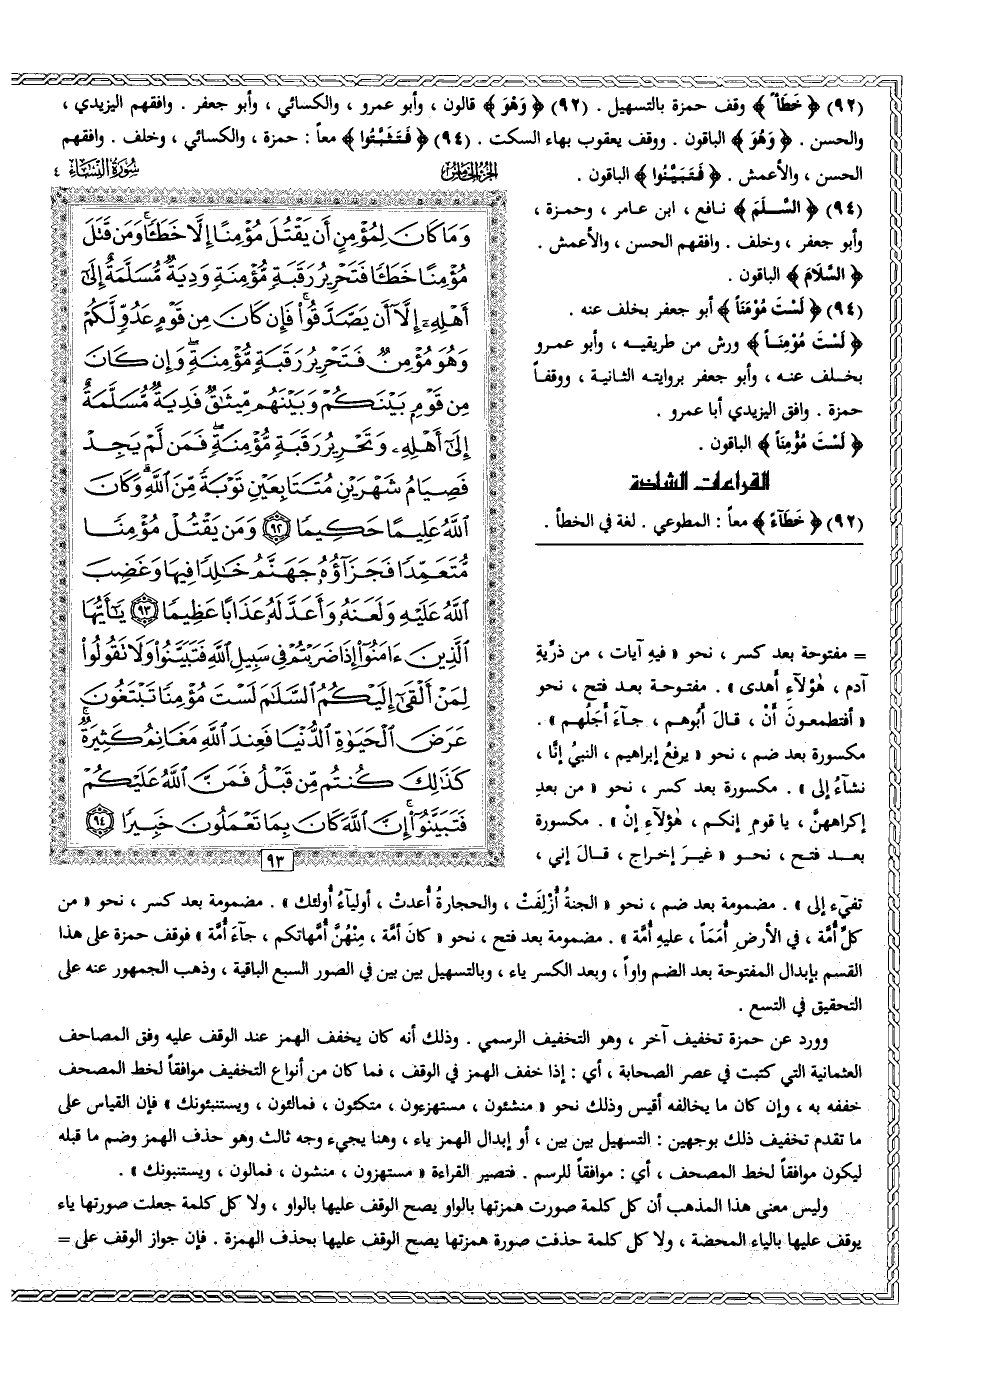 (٩٢) ﴿ خَطَأً ﴾ وقف حمزة بالتسهيل . (٩٢) ﴿ وَهْوَ ﴾ قالون ، وأبو عمرو ، والكسائي ، وأبو جعفر . وافقهم اليزيدي ،
والحسن . ﴿ وَهُوَ ﴾ الباقون . ووقف يعقوب بهاء السكت . (٩٤) ﴿ فَتَثَبَّتُوا ﴾ معاً : حمزة ، والكسائي ، وخلف . وافقهم
الحسن ، والأعمش . ﴿ فَتَبَيَّنُوا ﴾ الباقون .
(٩٤) ﴿ السَّلَمَ ﴾ نافع ، ابن عامر ، وحمزة ،
وأبو جعفر ، وخلف . وافقهم الحسن ، والأعمش .
﴿ السَّلَامَ ﴾ الباقون .
(٩٤) ﴿ لَسْتَ مُؤْمَناً ﴾ أبو جعفر بخلف عنه .
﴿ لَسْتَ مُوْمِنَـاً ﴾ ورش من طريقيـه ، وأبو عمرو
بخـلف عنـه ، وأبو جعفر بروايته الثانية ، ووقفـاً
حمزة . وافق اليزيدي أبا عمرو .
﴿ لَسْتَ مُؤْمِنَاً ﴾ الباقون .
القراءات الشاذة
(٩٢) ﴿ خَطَآءً ﴾ معاً : المطوعي . لغة في الخطأ .
الجزء الخامس
سورة النساء ٤
وَمَا كَانَ لِمُؤْمِنٍ أَن يَقْتُلَ مُؤْمِنًا إِلَّا خَطَـًٔا ۚ وَمَن قَتَلَ
مُؤْمِنًا خَطَـًٔا فَتَحْرِيرُ رَقَبَةٍ مُّؤْمِنَةٍ وَدِيَةٌ مُّسَلَّمَةٌ إِلَىٰٓ
أَهْلِهِۦٓ إِلَّآ أَن يَصَّدَّقُوا۟ ۚ فَإِن كَانَ مِن قَوْمٍ عَدُوٍّ لَّكُمْ
وَهُوَ مُؤْمِنٌ فَتَحْرِيرُ رَقَبَةٍ مُّؤْمِنَةٍ ۖ وَإِن كَانَ
مِن قَوْمٍۭ بَيْنَكُمْ وَبَيْنَهُم مِّيثَـٰقٌ فَدِيَةٌ مُّسَلَّمَةٌ
إِلَىٰٓ أَهْلِهِۦ وَتَحْرِيرُ رَقَبَةٍ مُّؤْمِنَةٍ ۖ فَمَن لَّمْ يَجِدْ
فَصِيَامُ شَهْرَيْنِ مُتَتَابِعَيْنِ تَوْبَةً مِّنَ ٱللَّهِ ۗ وَكَانَ
ٱللَّهُ عَلِيمًا حَكِيمًا ٩٢ وَمَن يَقْتُلْ مُؤْمِنًا
مُّتَعَمِّدًا فَجَزَآؤُهُۥ جَهَنَّمُ خَـٰلِدًا فِيهَا وَغَضِبَ
ٱللَّهُ عَلَيْهِ وَلَعَنَهُۥ وَأَعَدَّ لَهُۥ عَذَابًا عَظِيمًا ٩٣ يَـٰٓأَيُّهَا
ٱلَّذِينَ ءَامَنُوٓا۟ إِذَا ضَرَبْتُمْ فِى سَبِيلِ ٱللَّهِ فَتَبَيَّنُوا۟ وَلَا تَقُولُوا۟
لِمَنْ أَلْقَىٰٓ إِلَيْكُمُ ٱلسَّلَـٰمَ لَسْتَ مُؤْمِنًا تَبْتَغُونَ
عَرَضَ ٱلْحَيَوٰةِ ٱلدُّنْيَا فَعِندَ ٱللَّهِ مَغَانِمُ كَثِيرَةٌ ۚ
كَذَٰلِكَ كُنتُم مِّن قَبْلُ فَمَنَّ ٱللَّهُ عَلَيْكُمْ
فَتَبَيَّنُوٓا۟ ۚ إِنَّ ٱللَّهَ كَانَ بِمَا تَعْمَلُونَ خَبِيرًا ٩٤
٩٣
= مفتوحة بعد كسر ، نحو « فيهِ آيات ، من ذرِّيةِ
آدم ، هٰؤلآءِ أَهدى » . مفتوحـة بعـد فتح ، نحو
« أفتطمعونَ أَنْ ، قـالَ أَبُوهم ، جـآءَ أَجَلُهم » .
مكسورة بعد ضم ، نحو « يرفعُ إبراهيم ، النبيُ إنَّا ،
نشآءُ إلى » . مكسورة بعد كسر ، نحو « من بعدِ
إكراههنَّ ، يا قومِ إنكـم ، هٰؤلآءِ إنْ » . مكسورة
بعـد فتح ، نحـو « غيرَ إخراج ، قـالَ إني ،
تفيٓء إلى » . مضمومة بعد ضم ، نحو « الجنةُ أُزْلِفَتْ ، والحجارةُ أُعدتْ ، أولياءُ أُولئك » . مضمومة بعد كسر ، نحو « من
كلِّ أُمَّة ، في الأرضِ أُمَمَاً ، عليهِ أُمَّة » . مضمومة بعد فتح ، نحو « كانَ أمَّة ، مِنْهُنَّ أُمَّهاتكم ، جآءَ أُمَّة » فوقف حمزة على هذا
القسم بإبدال المفتوحة بعد الضم واواً ، وبعد الكسر ياء ، وبالتسهيل بين بين في الصور السبع الباقية ، وذهب الجمهور عنه على
التحقيق في التسع .
وورد عن حمزة تخفيف آخر ، وهو التخفيف الرسمي . وذلك أنه كان يخفف الهمز عند الوقف عليه وفق المصاحف
العثمانية التي كتبت في عصر الصحابة ، أي : إذا خفف الهمز في الوقف ، فما كان من أنواع التخفيف موافقاً لخط المصحف
خففه به ، وإن كان ما يخالفه أقيس وذلك نحو « منشئون ، مستهزءون ، متكئون ، فمالئون ، ويستنبئونك » فإن القياس على
ما تقدم تخفيف ذلك بوجهين : التسهيل بين بين ، أو إبدال الهمز ياء ، وهنا يجيء وجه ثالث وهو حذف الهمز وضم ما قبله
ليكون موافقاً لخط المصحف ، أي : موافقاً للرسم . فتصير القراءة « مستهزون ، منشون ، فمالون ، ويستنبونك » .
وليس معنى هذا المذهب أن كل كلمة صورت همزتها بالواو يصح الوقف عليها بالواو ، ولا كل كلمة جعلت صورتها ياء
يوقف عليها بالياء المحضة ، ولا كل كلمة حذفت صورة همزتها يصح الوقف عليها بحذف الهمزة . فإن جواز الوقف على =